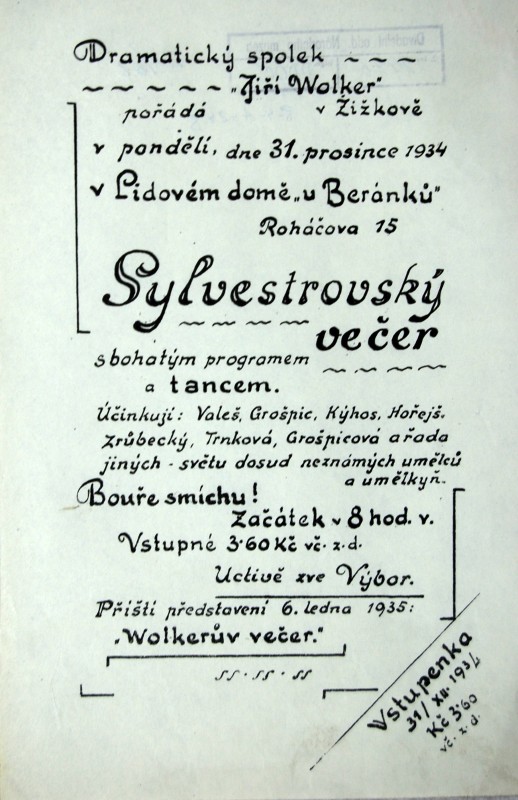 Dramatický spolek
„Jiří Wolker"
pořádá v Žižkově
v pondělí, dne 31. prosince 1934
v Lidovém domě „u Beránků"
Roháčova 15
Sylvestrovský
večer
s bohatým programem
a tancem.
Účinkují: Valeš, Grošpic, Kýhos, Hořejš.
Zrůbecký, Trnková, Grošpicová a řada
jiných - světu dosud neznámých umělců
a umělkyň.
Bouře smíchu!
Začátek v 8 hod. v.
Vstupné 3·60 Kč vč. z. d.
Uctivě zve Výbor.
Příští představení 6. ledna 1935:
„Wolkerův večer."
Vstupenka
31/XII. 1934
Kč 3·60
vč. z. d.